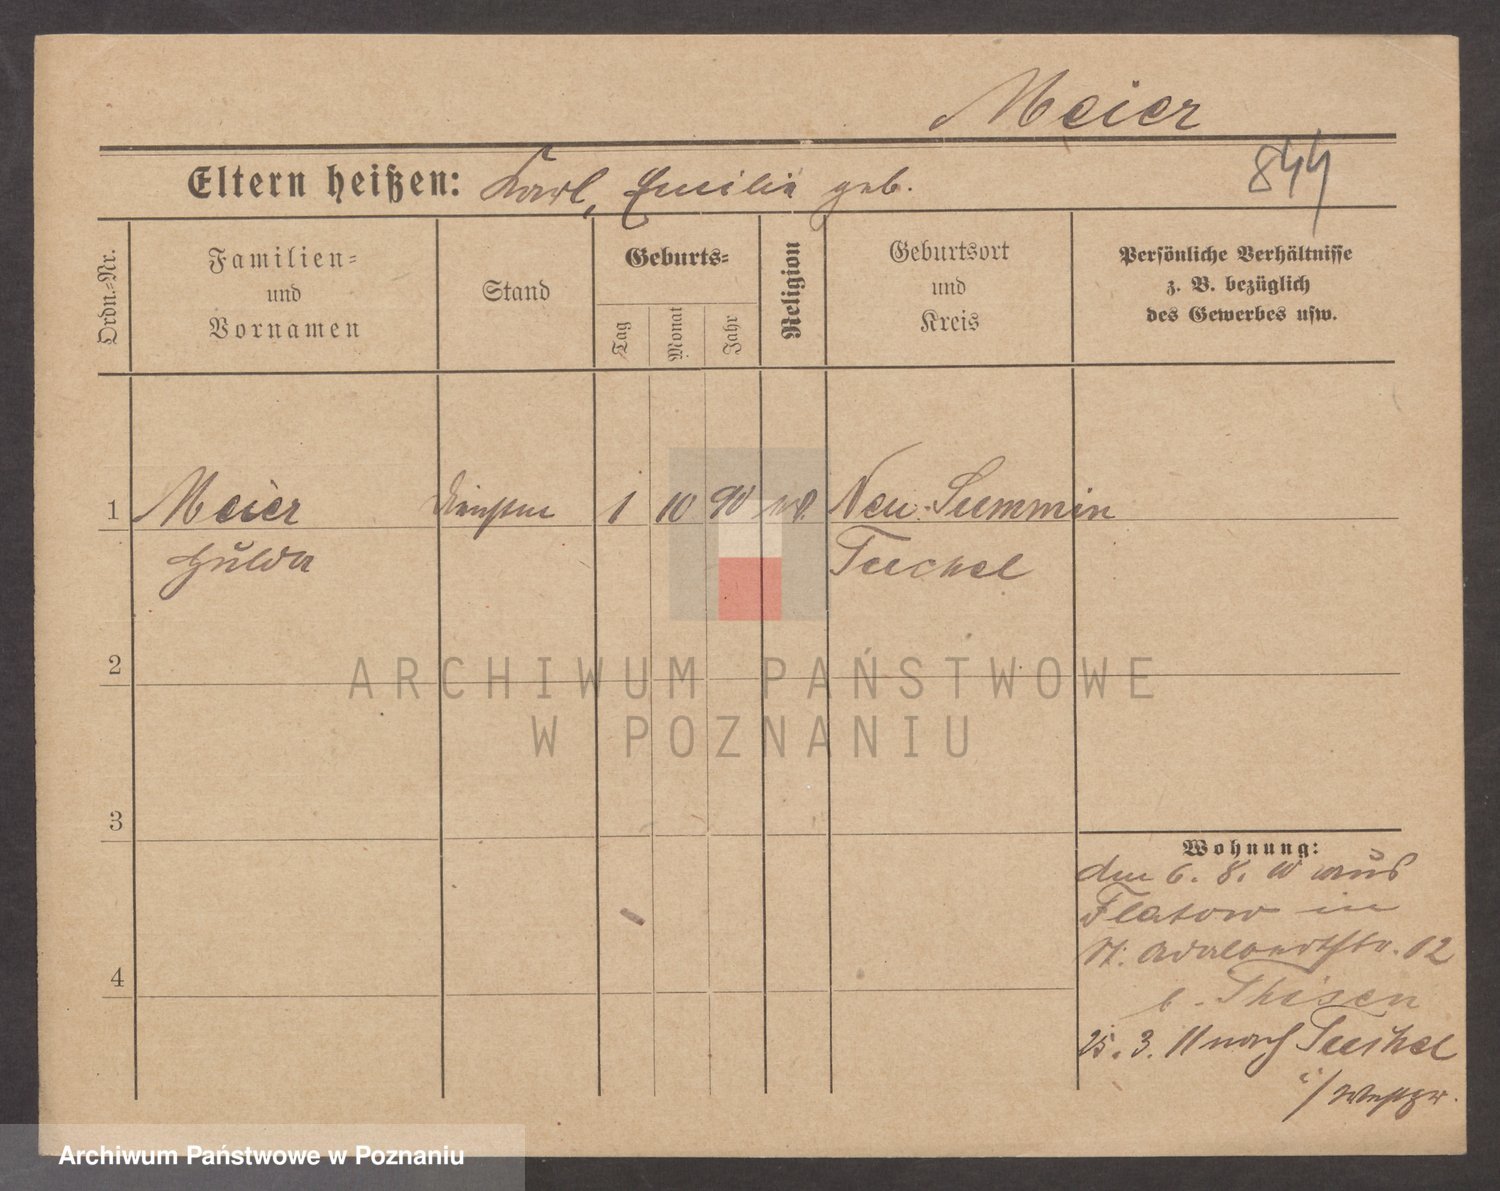 Meier
844
Eltern heißen: Karl, Emilie geb.
Ordn.-Nr.
Familien- und Vornamen
Stand
Geburts-
Tag
Monat
Jahr
Religion
Geburtsort und Kreis
Persönliche Verhältnisse
z. B. bezüglich
des Gewerbes usw.
1 Meier 1 10 90 Neu-Summin
Hulda Tuchel
2
ARCHIWUM PAŃSTWOWE
W POZNANIU
3
4
Wohnung:
den 6. 8. 10 aus
Flatow in
St. Adalbertstr. 12
b. Thisen
25. 3. 11 nach Tuchel
i/ Westpr.
Archiwum Państwowe w Poznaniu